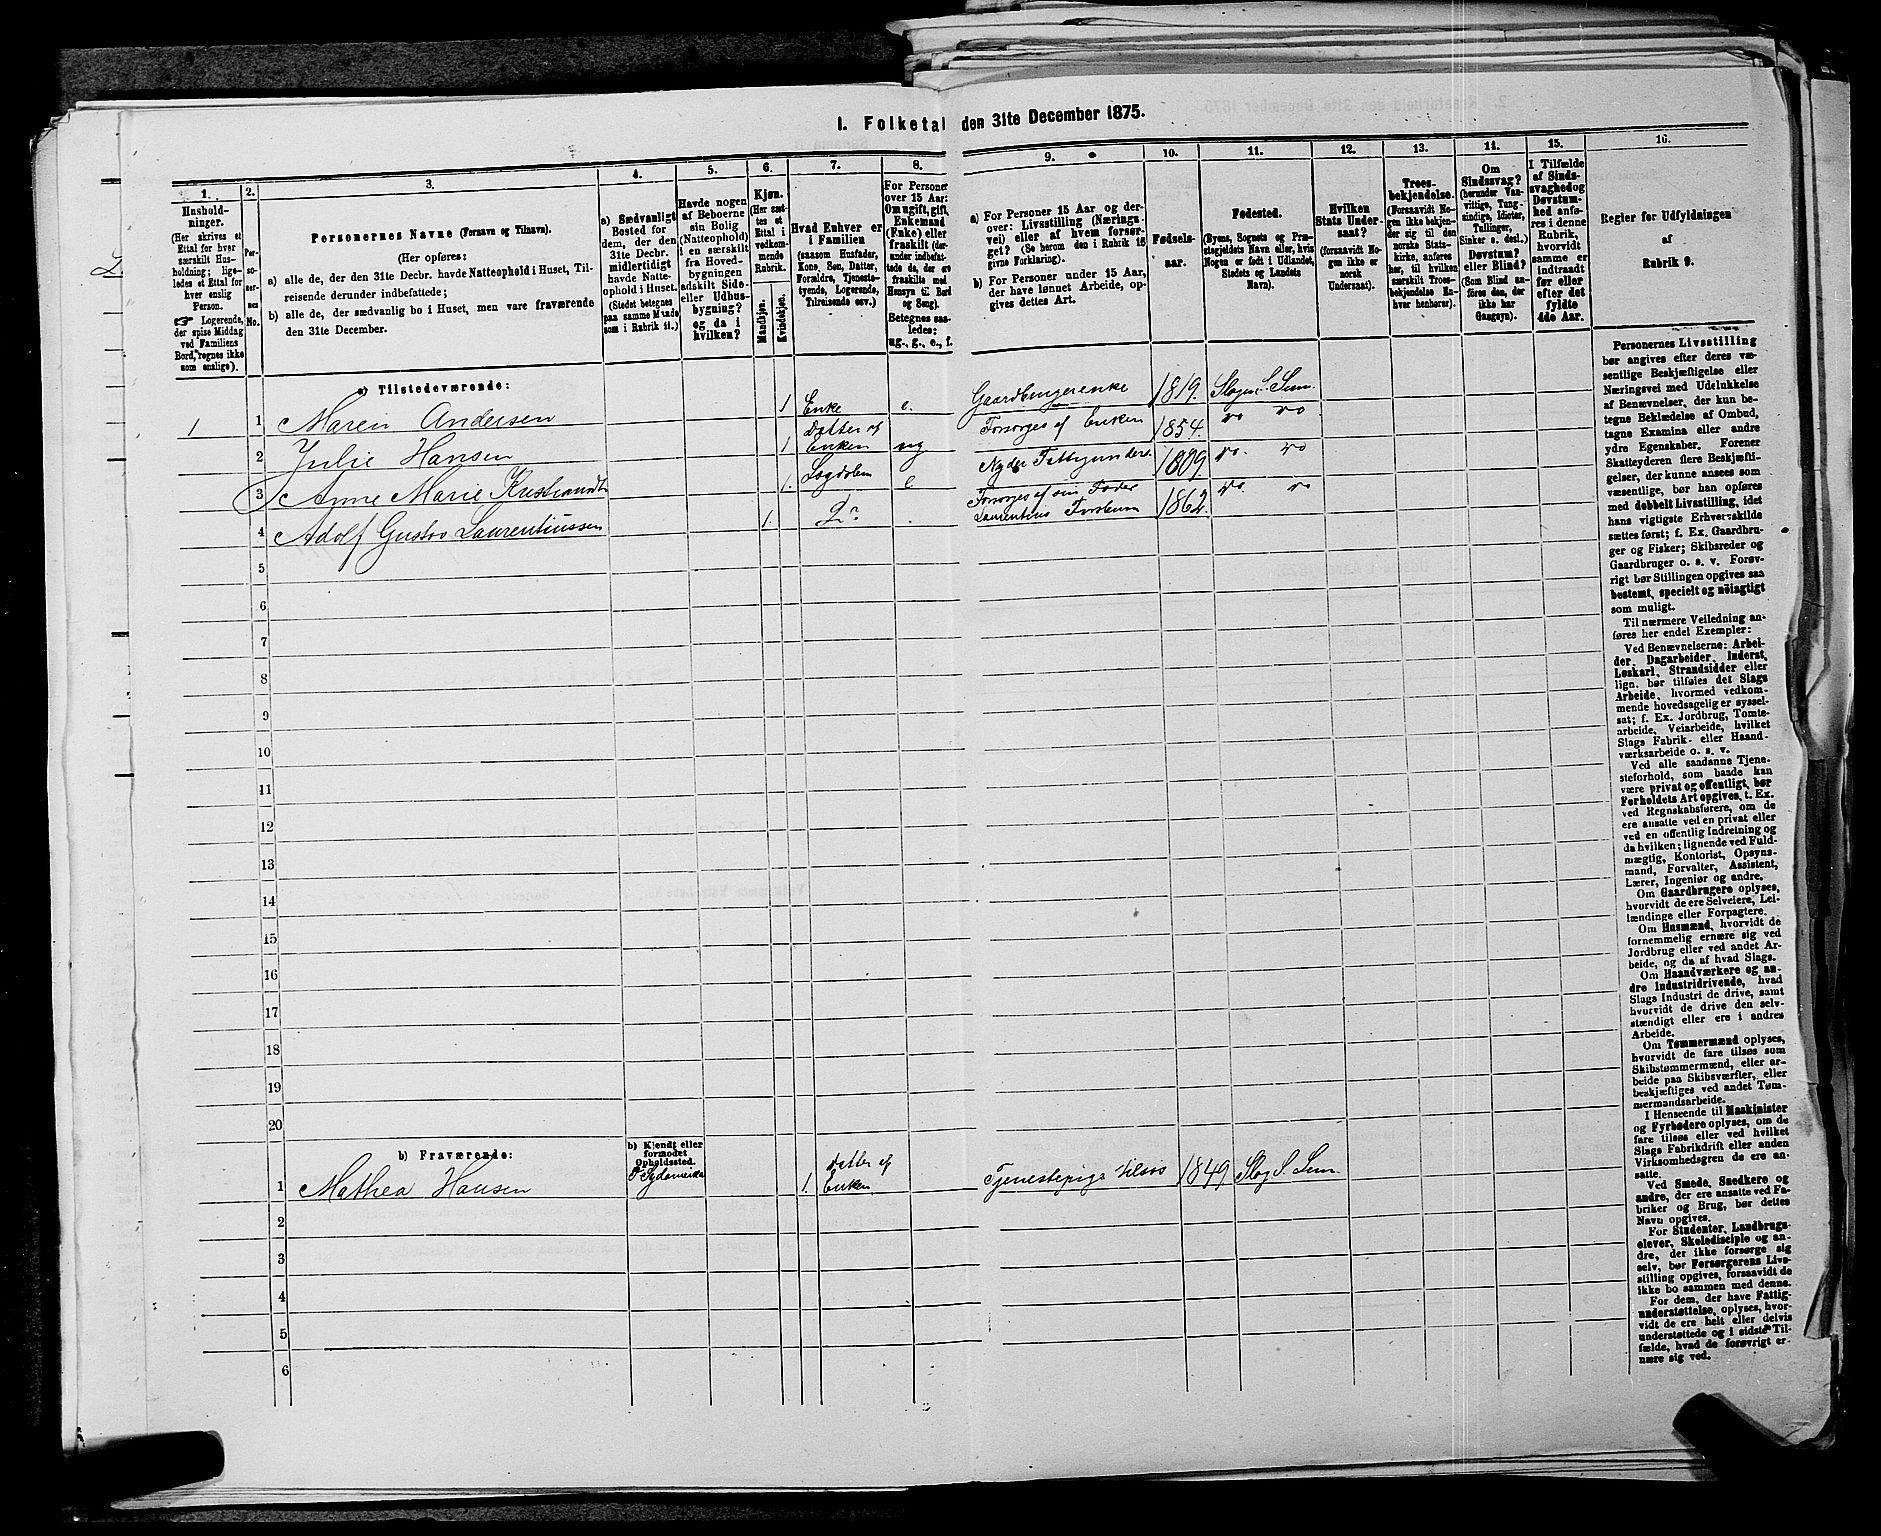 1. Folketal den 31te December 1875.
1.
Husholdninger.
(Her skrives et
Ettal for hver
særskilt Husholdning; ligeledes
et Ettal for
hver enslig
Person.
☞ Logerende,
der spise Middag
ved Familiens
Bord, regnes ikke
som enslige).
2.
Personernes
No.
3.
Personernes Navne (Fornavn og Tilnavn).
(Her opføres:
a) alle de, der den 31te Decbr. havde Natteophold i Huset, Tilreisende
derunder indbefattede;
b) alle de, der sædvanlig bo i Huset, men vare fraværende
den 31te December.
4.
a) Sædvanligt
Bosted for
dem, der den
31te Decbr.
midlertidigt
havde Natteophold
i Huset.
(Stedet betegnes
paa samme Maade
som i Rubrik 11.)
5.
Havde nogen
af Beboerne
sin Bolig
(Natteophold)
i en særskilt
fra Hovedbygningen
adskilt Side-
eller Udhusbygning?
og da i
hvilken?
6.
Kjøn.
(Her sættes
et
Ettal i
vedkommende
Rubrik.
Mandkjøn.
Kvindekjøn.
7.
Hvad Enhver er
i Familien
(saasom Husfader,
Kone, Søn, Datter,
Forældre, Tjenestetyende,
Logerende,
Tilreisende osv.)
8.
For Personer
over 15 Aar:
Om ugift, gift,
Enkemand
(Enke) eller
fraskilt (derunder
indbefattede
de, der ere
fraskilte med
Hensyn til Bord
og Seng).
Betegnes saaledes:
ug., g., e., f.
9.
a) For Personer 15 Aar og derover:
Livsstilling (Næringsvei)
eller af hvem forsørget?
(Se herom den i Rubrik 16
givne Forklaring).
b) For Personer under 15 Aar,
der have lønnet Arbeide, opgives
dettes Art.
10.
Fødselsaar.
11.
Fødested.
(Byens, Sognets og Præstegjeldets
Navn eller, hvis
Nogen er født i Udlandet,
Stedets og Landets
Navn).
12.
Hvilken
Stats Undersaat?
(forsaavidt Nogen
ikke er
norsk
Undersaat).
13.
Troesbekjendelse.
(Forsaavidt Nogen
ikke bekjender
sig til den
norske Statskirke,
anføres
her, til hvilken
særskilt Troesbekjendelse
Enhver
henhører).
14.
Om
Sindssvag?
(herunder Vanvittige,
Tungsindige,
Idioter,
Tullinger,
Sinker o. desl.)
Døvstum?
eller Blind?
(Som Blind anføres
den, der
ikke har
Gangsyn).
15.
I Tilfælde
af Sindssvaghed
og
Døvstumhed
anføres
i denne
Rubrik,
hvorvidt
samme er
indtraadt
før eller
efter det
fyldte
4de Aar.
16.
Regler for Udfyldningen
af
Rubrik 9.
a) Tilstedeværende:
1 1 Maren Andersen 1 Enke e. Gaardbrugerenke 1819. Slagn S. Sem.
2 Julie Hansen 1 Datter af Enken ug Forsørges af Enken 1854. do do
3 Anne Marie Kristiandt 1. Logerende e. Nyder Fattigunders. 1809 do. do
4 Adolf Gustav Laurentiussen 1. Do Forsørges af sin Fader Laurentius 1862. do. do
5
6
7
8
9
10
11
12
13
14
15
16
17
18
19
20
b) Fraværende:
b) Kjendt eller
formodet
Opholdssted.
1 Mathea Hansen Sydamerika 1. Datter af Enken Tjenestepige tilsøs 1849 Slag. S. Sem
2
3
4
5
6
Personernes Livsstilling
bør angives efter deres væsentlige
Beskjæftigelse eller
Næringsvei med Udelukkelse
af Benævnelser, der kun betegne
Beklædelse af Ombud,
tagne Examina eller andre
ydre Egenskaber. Forener
Skatteyderen flere Beskjæftigelser,
der kunne ansees som
væsentlige, bør han opføres
med dobbelt Livsstilling, idet
hans vigtigste Erhvervskilde
sættes først; f. Ex. Gaardbruger
og Fisker; Skibsreder og
Gaardbruger o. s. v. Forøvrigt
bør Stillingen opgives saa
bestemt, specielt og nøiagtigt
som muligt.
Til nærmere Veiledning anføres
her endel Exempler:
Ved Benævnelserne: Arbeider,
Dagarbeider, Inderst,
Løskarl, Strandsidder eller
lign. bør tilføies det Slags
Arbeide, hvormed vedkommende
hovedsagelig er sysselsat;
f. Ex. Jordbrug, Tomtearbeide,
Veiarbeide, hvilket
Slags Fabrik- eller Haandværksarbeide
o. s. v.
Ved alle saadanne Tjenesteforhold,
som baade kan
være privat og offentligt, bør
Forholdets Art opgives, t. Ex.
ved Regnskabsførere, om de
ere ansatte ved en privat eller
ved en offentlig Indretning og
da hvilken; lignende ved Fuldmægtig,
Kontorist, Opsynsmand,
Forvalter, Assistent,
Lærer, Ingeniør og andre.
Om Gaardbrugere oplyses,
hvorvidt de ere Selveiere, Leilændinge
eller Forpagtere.
Om Husmænd, hvorvidt de
fornemmelig ernære sig ved
Jordbrug eller ved andet Arbeide,
og da af hvad Slags.
Om Haandværkere og andre
Industridrivende, hvad
Slags Industri de drive, samt
hvorvidt de drive den selvstændigt
eller ere i andres
Arbeide.
Om Tømmermænd oplyses,
hvorvidt de fare tilsøs som
Skibstømmermænd, eller arbeide
paa Skibsværfter, eller
beskjæftiges ved andet Tømmermandsarbeide.
I Henseende til Maskinister
og Fyrbødere oplyses, om de
fare tilsøs eller ved hvilket
Slags Fabrikdrift eller anden
Virksomhedsgren de ere ansatte.
Ved Smede, Snedkere og
andre, der ere ansatte ved Fabriker
og Brug, bør dettes
Navn opgives.
For Studenter, Landbrugselever,
Skoledisciple og andre,
der ikke forsørge sig
selv, bør Forsørgerens Livsstilling
opgives, forsaavidt de
ikke bo sammen med denne.
For dem, der have Fattigunderstøttelse,
oplyses, hvorvidt
de ere helt eller delvis
understøttede og i sidste Tilfælde,
hvad de forøvrigt ernære
sig ved.